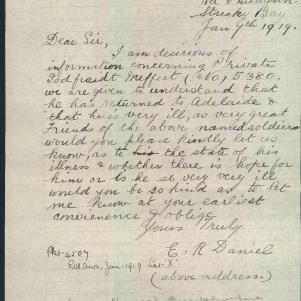 Streaky Bay
Jan 9th 1919.
Dear Sir,
I am desirious of
information concerning Private
Godfreidt Meffert (No) 5380.
we are given to understand that
he has returned to Adelaide &
that he is very ill, as very great
Friends of the above named soldiers
would you please kindly let us
know, as to the state of his
illness & whether there is hope for
him or is he so very very ill
would you be so kind as to let
me know at your earliest
convienence & oblige
Yours Truly
E. R Daniel
(above address.)
Jan-1919